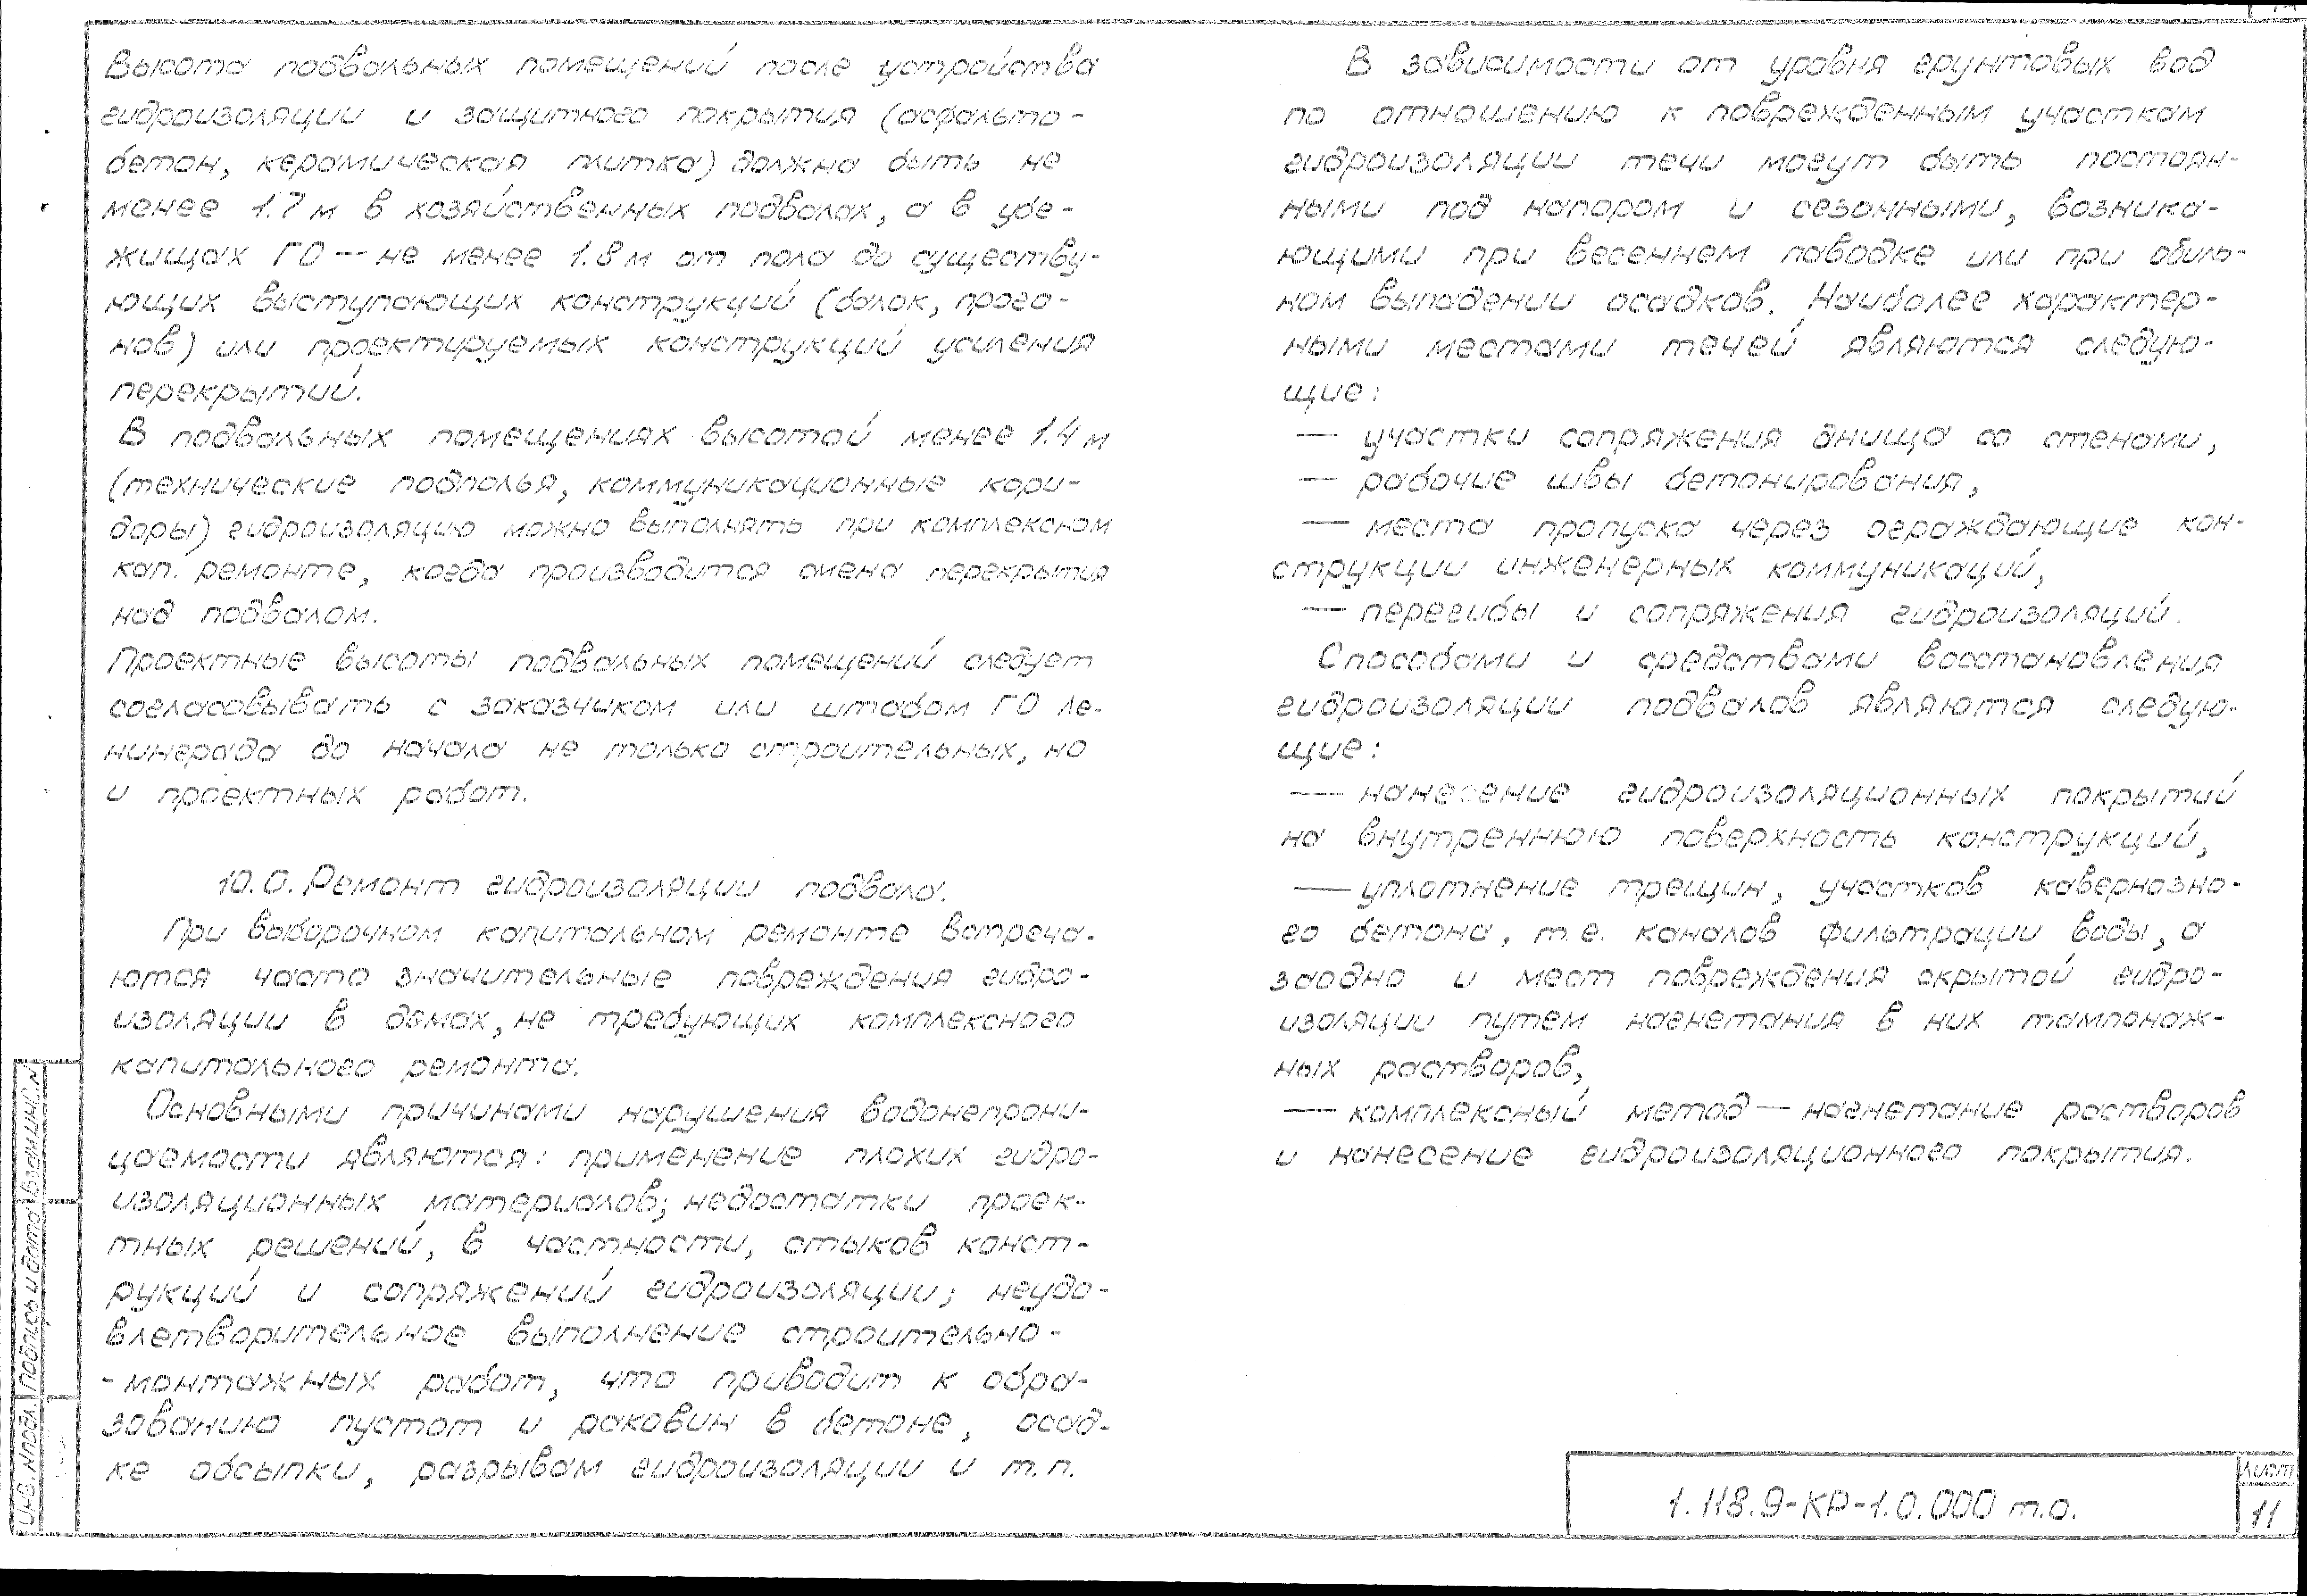 Высота подвальных помещений после устройства
гидроизоляции и защитного покрытия (асфальто-
бетон, керамическая плитка) должна быть не
менее 1.7 м в хозяйственных подвалах, а в убе-
жищах ГО — не менее 1.8 м от пола до существу-
ющих выступающих конструкций (балок, прого-
нов) или проектируемых конструкций усиления
перекрытий.
В подвальных помещениях высотой менее 1.4 м
(технические подполья, коммуникационные кори-
доры) гидроизоляцию можно выполнять при комплексном
кап. ремонте, когда производится смена перекрытия
над подвалом.
Проектные высоты подвальных помещений следует
согласовывать с заказчиком или штабом ГО Ле-
нинграда до начала не только строительных, но
и проектных работ.
10.0. Ремонт гидроизоляции подвала.
При выборочном капитальном ремонте встреча-
ются часто значительные повреждения гидро-
изоляции в домах, не требующих комплексного
капитального ремонта.
Основными причинами нарушения водонепрони-
цаемости являются: применение плохих гидро-
изоляционных материалов; недостатки проек-
тных решений, в частности, стыков конст-
рукций и сопряжений гидроизоляции; неудо-
влетворительное выполнение строительно-
-монтажных работ, что приводит к обра-
зованию пустот и раковин в бетоне, осад-
ке обсыпки, разрывам гидроизоляции и т.п.
В зависимости от уровня грунтовых вод
по отношению к поврежденным участкам
гидроизоляции течи могут быть постоян-
ными под напором и сезонными, возника-
ющими при весеннем паводке или при обиль-
ном выпадении осадков. Наиболее характер-
ными местами течей являются следую-
щие:
— участки сопряжения днища со стенами,
— рабочие швы бетонирования,
— места пропуска через ограждающие кон-
струкции инженерных коммуникаций,
— перегибы и сопряжения гидроизоляций.
Способами и средствами восстановления
гидроизоляции подвалов являются следую-
щие:
— нанесение гидроизоляционных покрытий
на внутреннюю поверхность конструкций,
— уплотнение трещин, участков кавернозно-
го бетона, т.е. каналов фильтрации воды, а
заодно и мест повреждения скрытой гидро-
изоляции путем нагнетания в них тампонаж-
ных растворов,
— комплексный метод — нагнетание растворов
и нанесение гидроизоляционного покрытия.
Инв. N подл. Подпись и дата Взам.инс.N
1.118.9-КР-1.0.000 т.о.
Лист
11